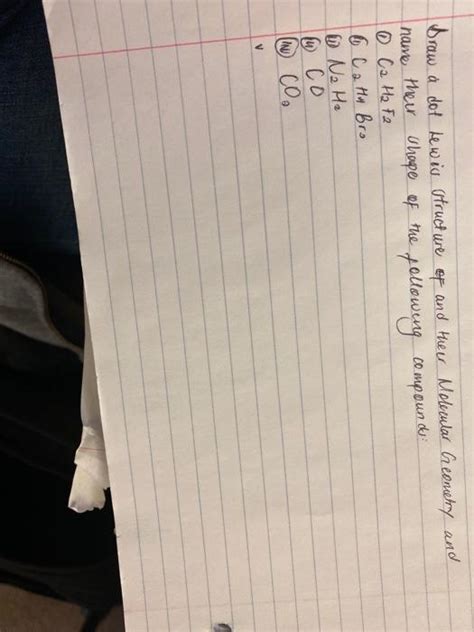 Draw a dot Lewis structure of and their Molecular Geometry and
name their shape of the following compound:
① C2 H2 F2
② C2 H4 Br2
③ N2 H2
④ CO
CO2
v